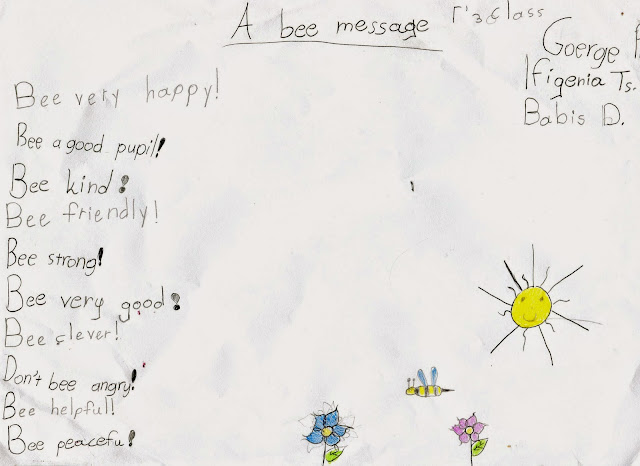 A bee message
Γ'3 class
Goerge
Ifigenia Ts.
Babis D.
Bee very happy!
Bee a good pupil!
Bee kind!
Bee friendly!
Bee strong!
Bee very good!
Bee clever!
Don't bee angry!
Bee helpful!
Bee peacefu!